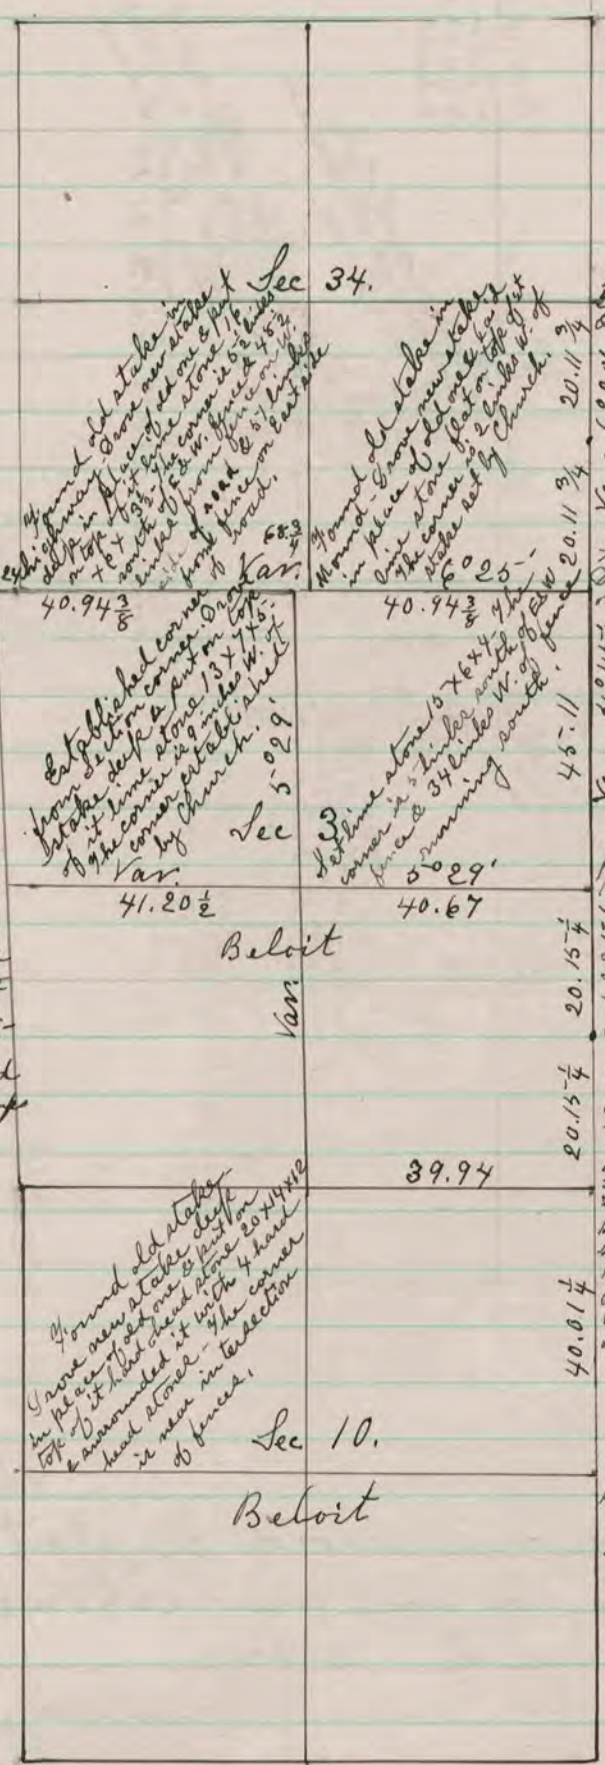 Sec 34.
Found old stake in
highway - Drove new stake
deep in place of old one & put
on top of it lime stone 16
x 6 x 3 1/2. The corner is 52 links
south of E & W. fence & 45 1/2
links from fence on W.
side of road & 57 links
from fence on East side
of road.
68 3/4
Var.
40.94 3/8
Found old stake in
Mound - Drove new stake
in place of old one & laid
lime stone flat on top of it
The corner is 2 links W. of
stake set by Church.
6° 25
40.94 3/8
20.11 3/4
20.11 3/4
Established corner
from Section corner. Drove
stake deep & put on top
of it lime stone 13 x 7 x 5.
The corner is 9 inches W. of
corner established
by Church.
Var.
5° 29'
Sec 3
41.20 1/2
Set lime stone 15 x 6 x 4. The
corner is 5 links south of E & W
fence & 34 links W. of fence
running south.
5° 29'
40.67
45.11
Beloit
Var.
20.15 1/4
20.15 1/4
39.94
Found old stake
Drove new stake deep
in place of old one & put on
top of it hard head stone 20x14x12
& surrounded it with 4 hard
head stones - The corner
is near intersection
of fences.
40.01 1/4
Sec 10.
Beloit